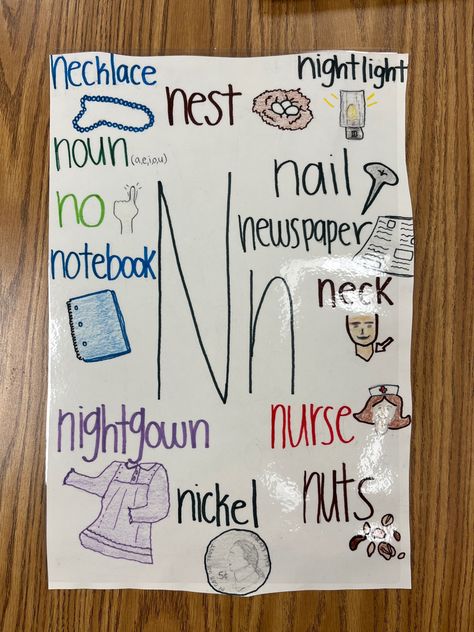 necklace
nest
nightlight
noun (a,e,i,o,u)
nail
no
newspaper
notebook
Nn
neck
nightgown
nurse
nickel
nuts
5¢